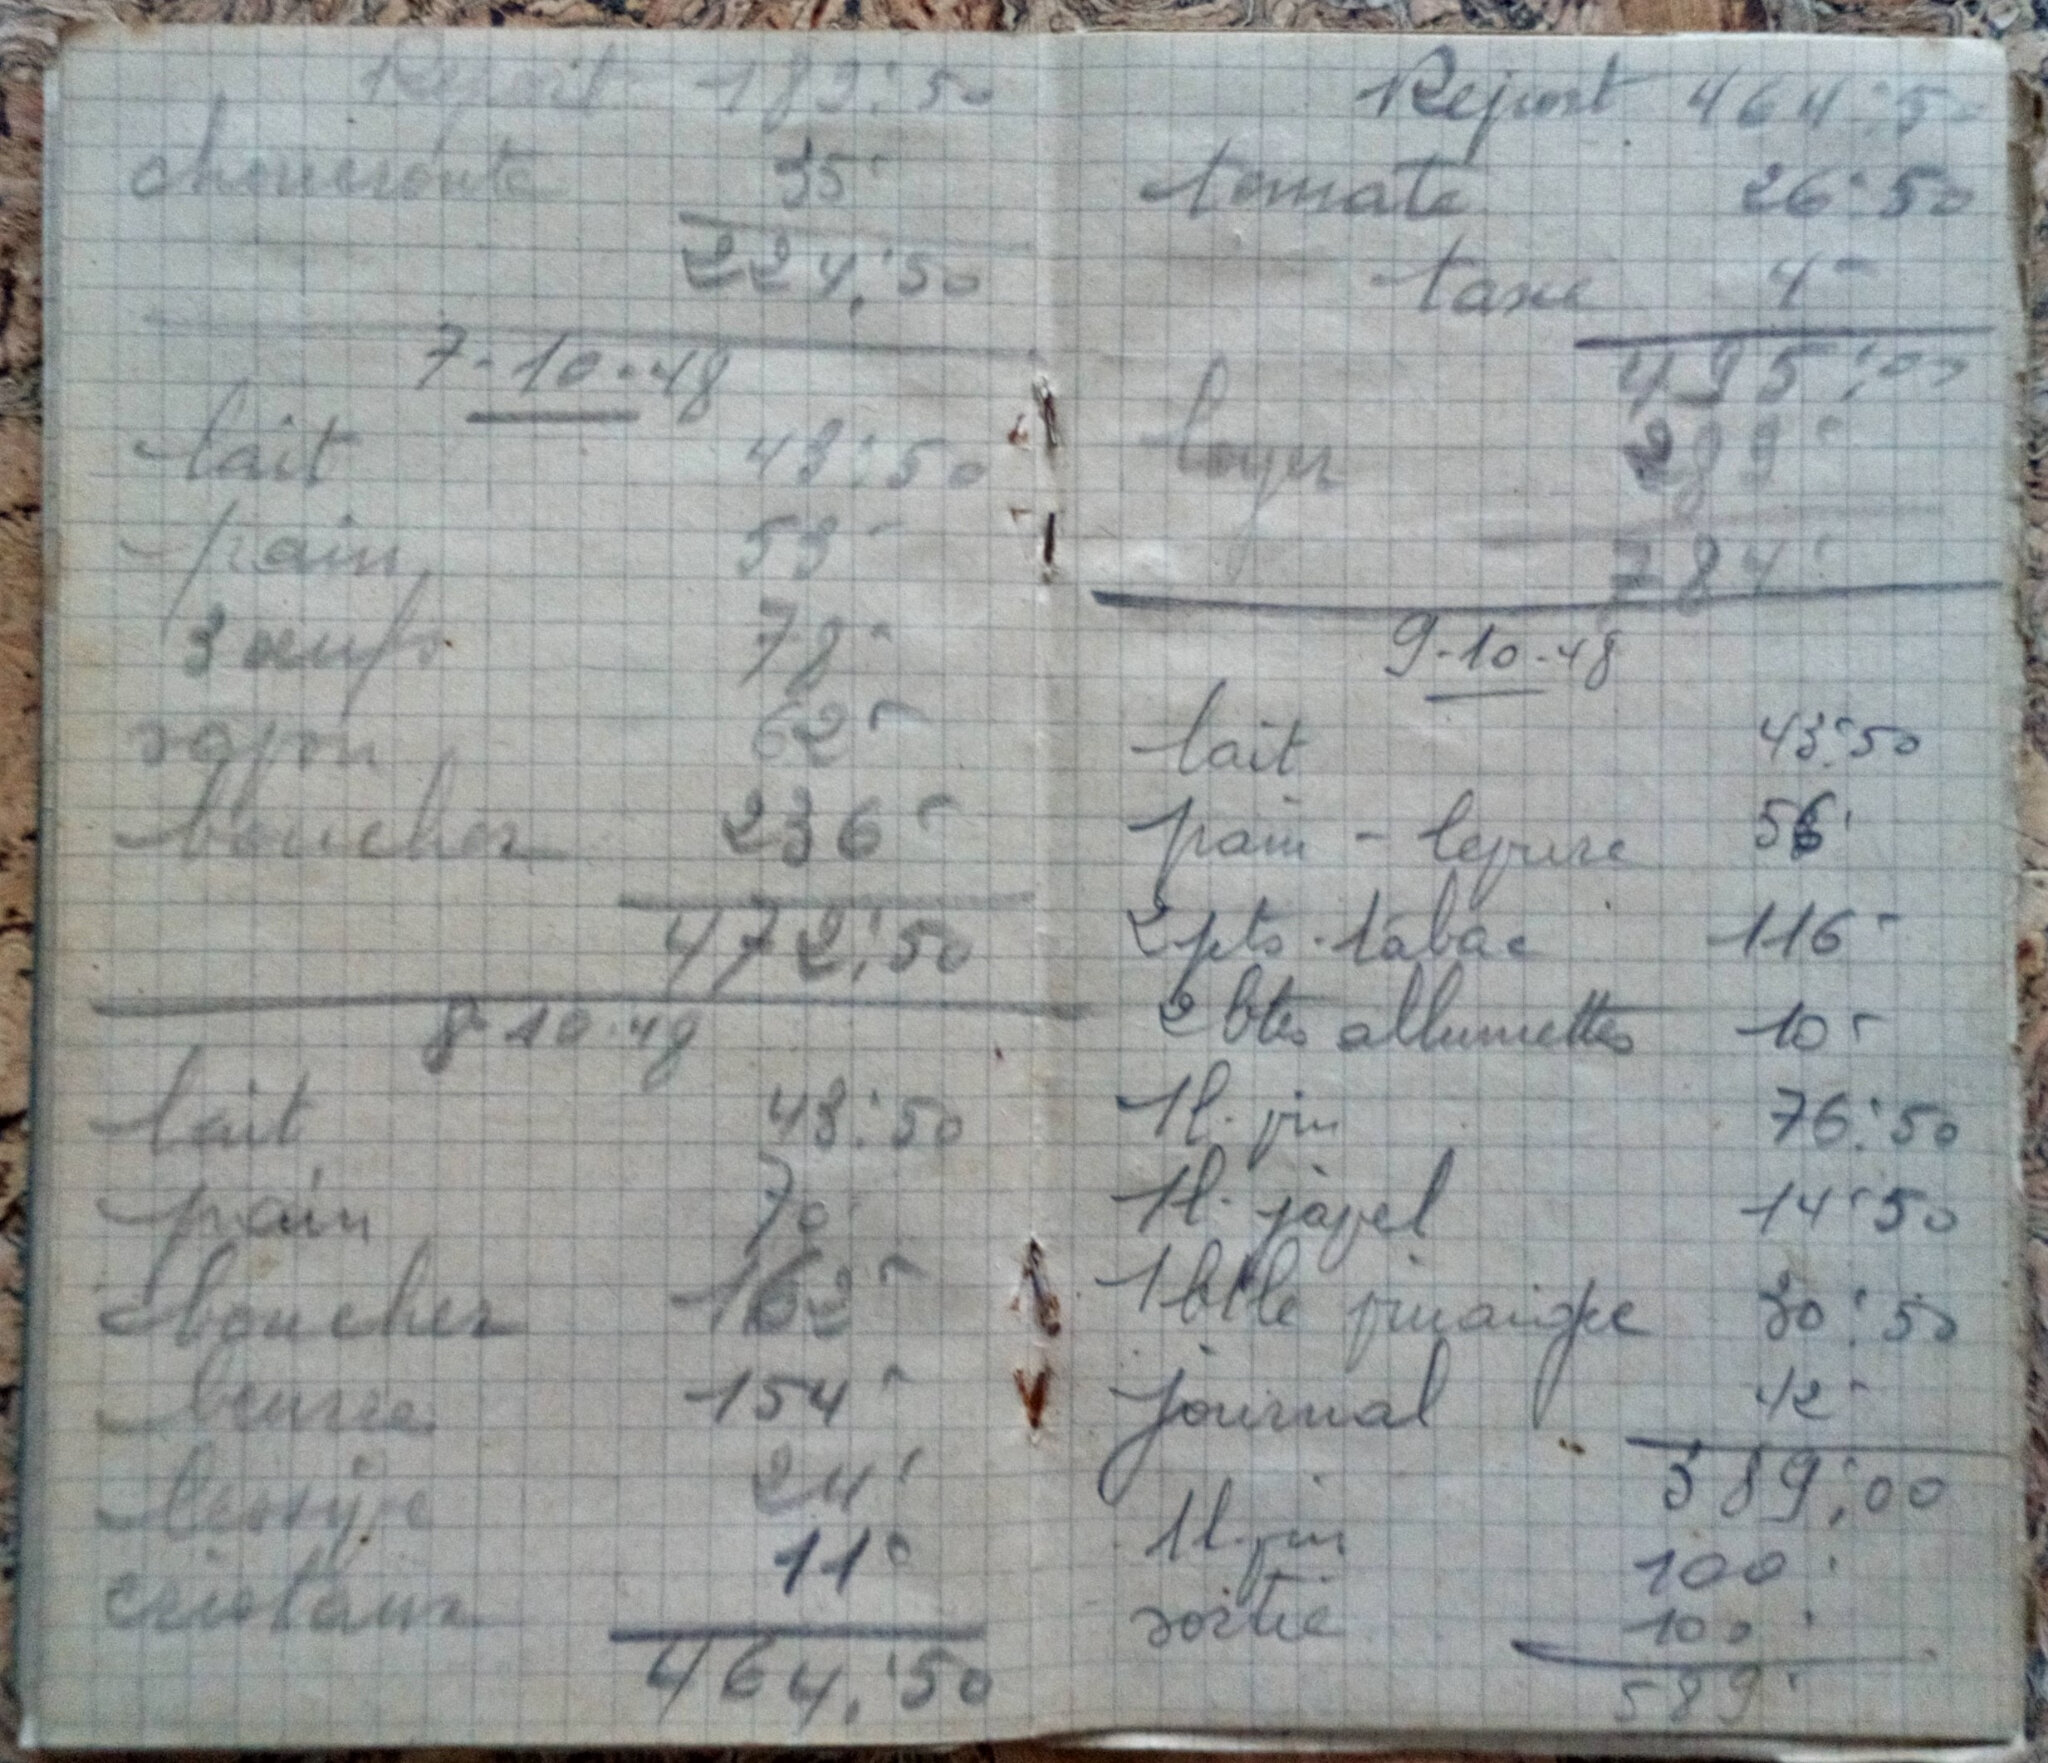 Report 189:50
choucroute 35-
224:50
7-10-48
lait 43:50
pain 53-
3 oeufs 78-
savon 62-
boucher 236-
472:50
8-10-48
lait 43:50
pain 70-
boucher 162-
beurre 154-
lessive 24-
cristaux 11-
464:50
Report 464:50
tomate 26:50
taxe 4-
495:00
loyer 289-
784-
9-10-48
lait 43:50
pain - levure 56-
2 pts. tabac 116-
2 btes allumettes 10-
1l. vin 76:50
1l. javel 14:50
1 btle vinaigre 30:50
journal 42-
389:00
1l. vin 100-
sortie 100-
589-